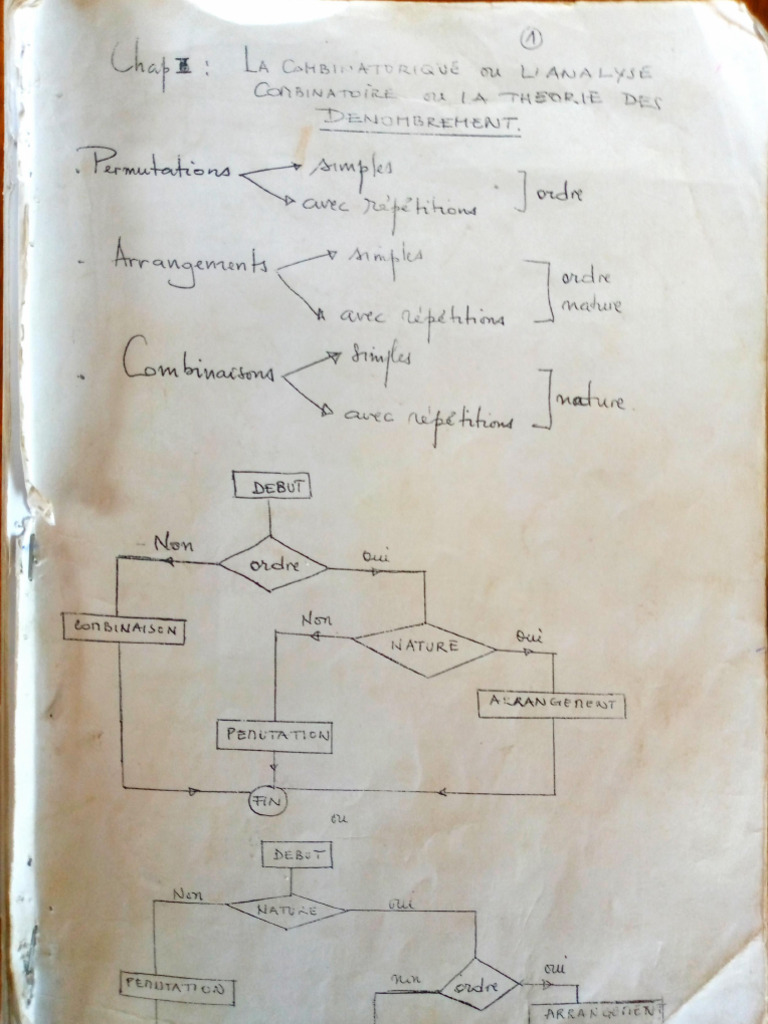 1
Chap II : LA COMBINATORIQUE ou L'ANALYSE
COMBINATOIRE ou LA THEORIE DES
DENOMBREMENT.
. Permutations simples
avec répétitions ] ordre
. Arrangements simples
ordre
nature
avec répétitions
. Combinaisons simples
nature
avec répétitions
DEBUT
Non ordre oui
COMBINAISON
Non NATURE oui
ARRANGEMENT
PEMUTATION
FIN
ou
DEBUT
Non NATURE oui
PEMUTATION
non ordre oui
ARRANGEMENT